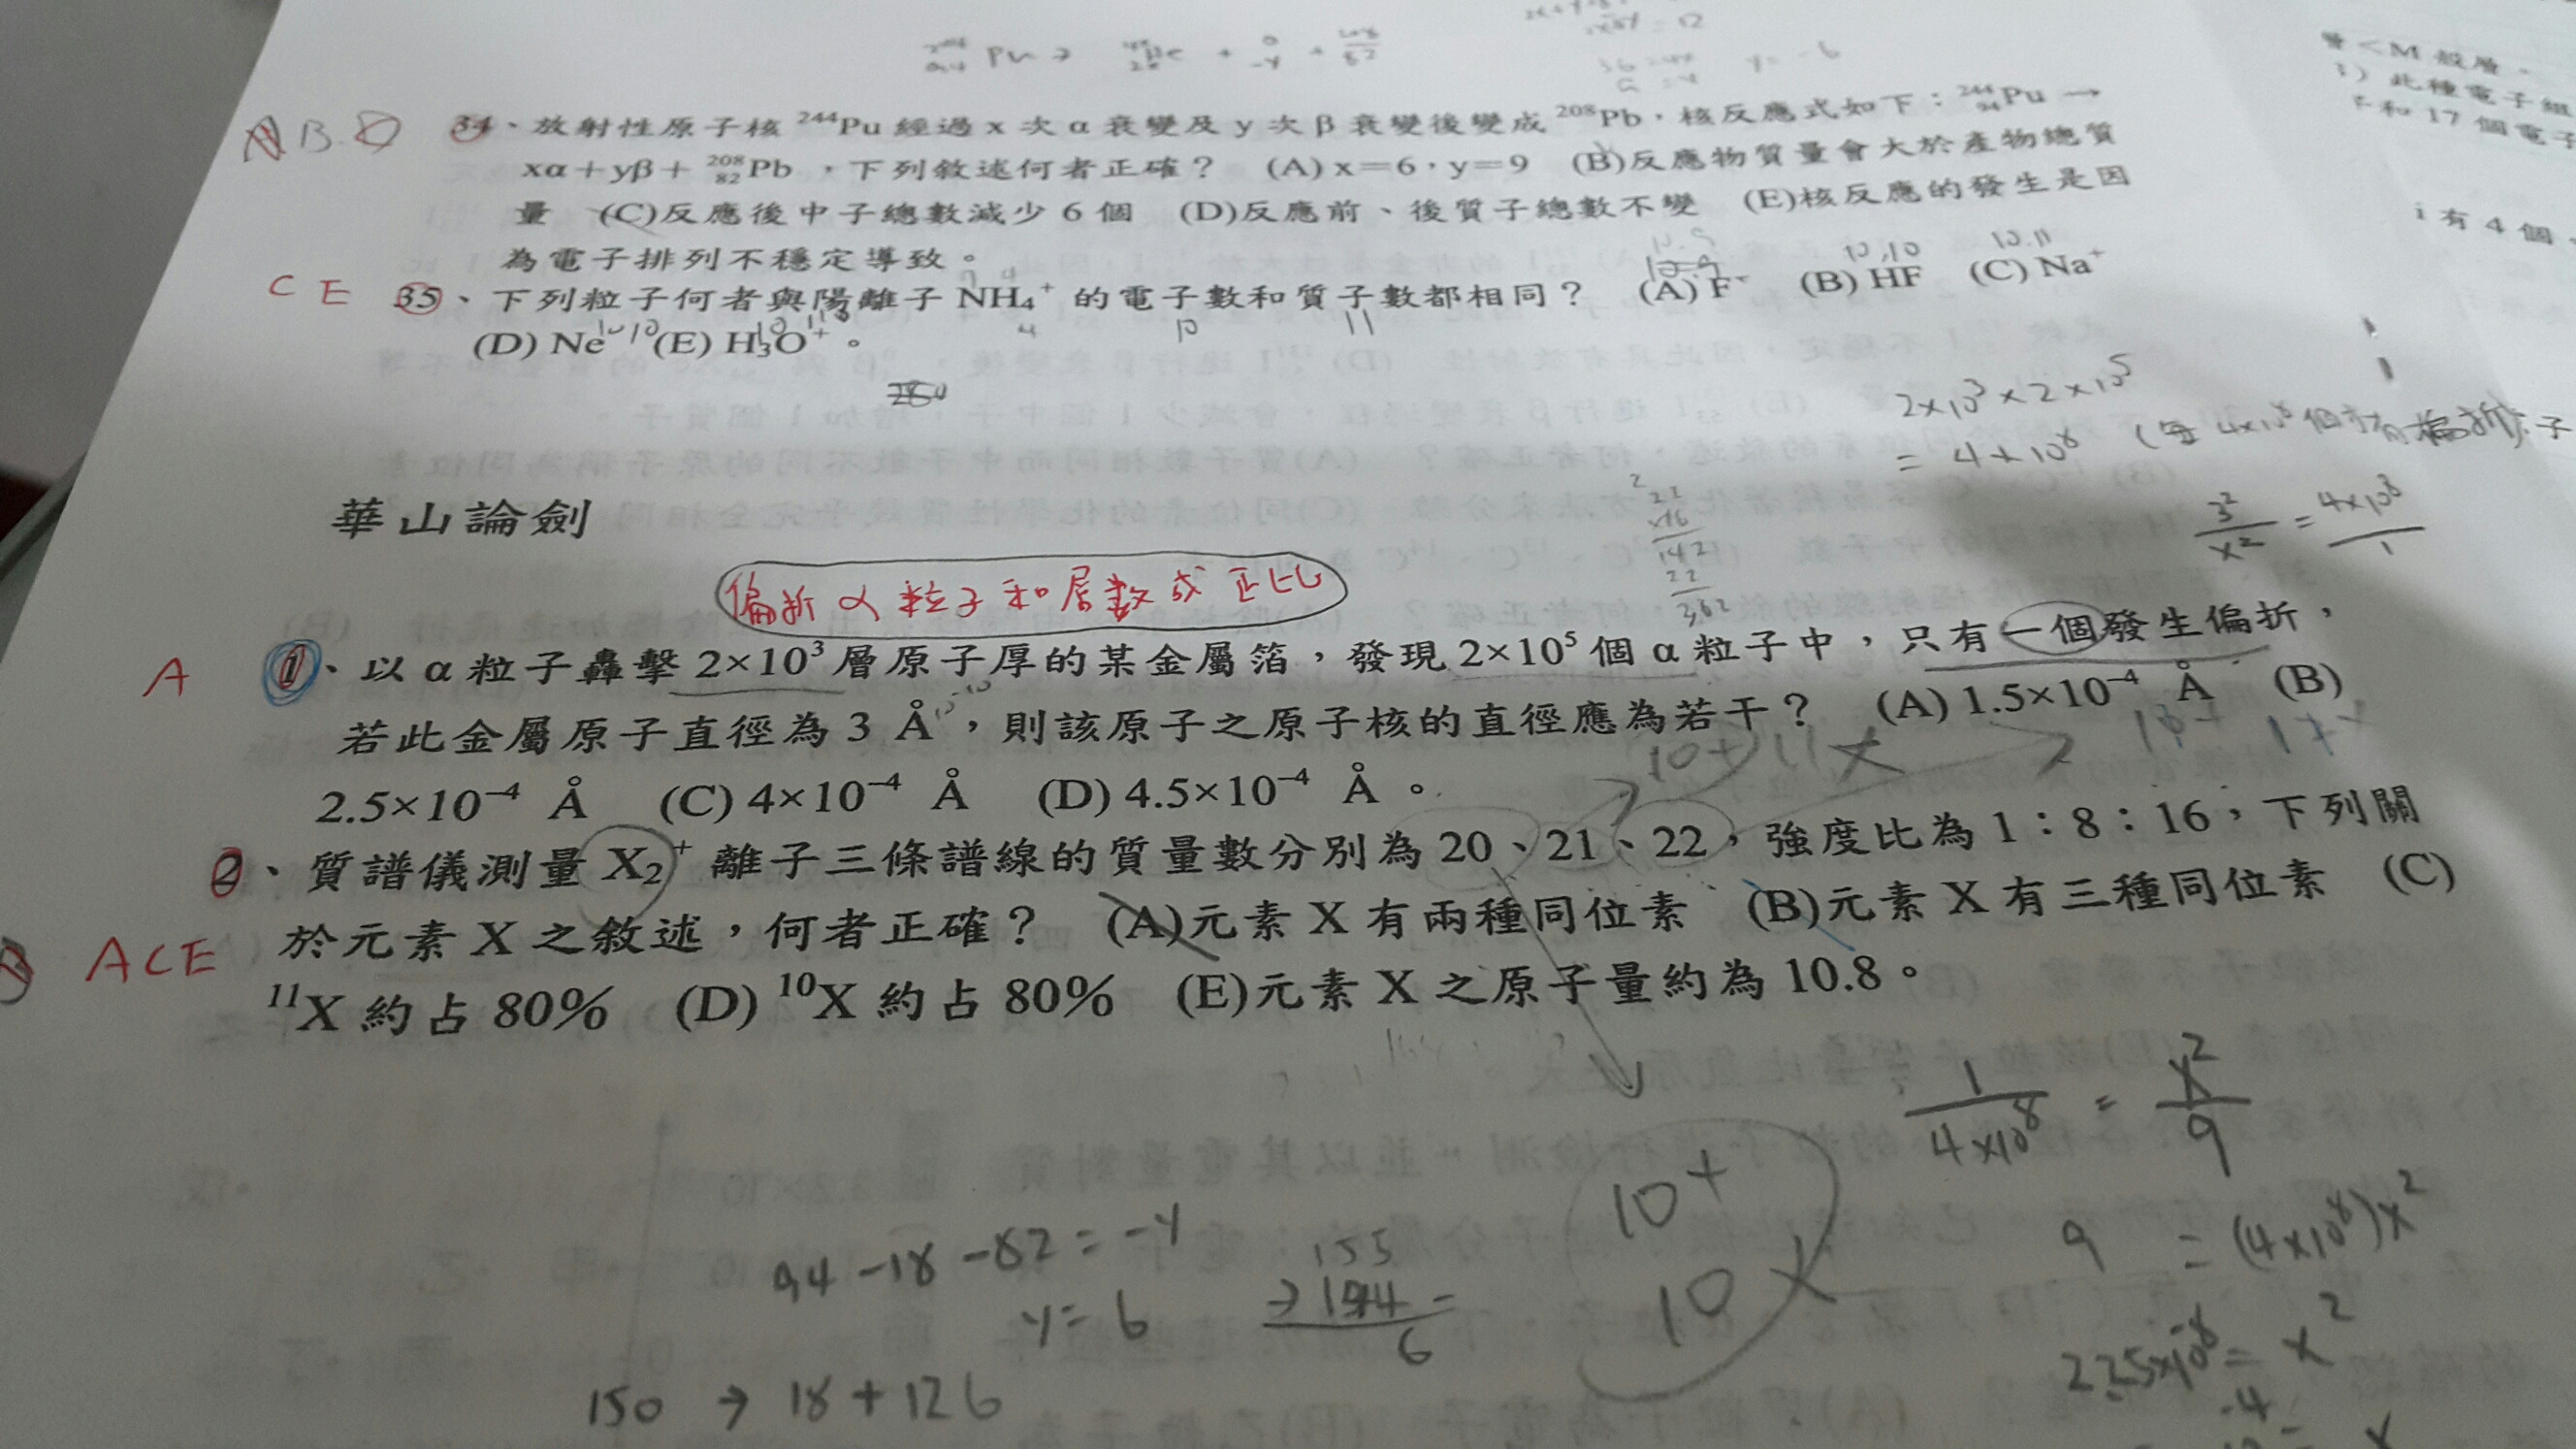 Pu →
y = -6
AB.
34、放射性原子核 ²⁴⁴Pu 經過 x 次 α 衰變及 y 次 β 衰變後變成 ²⁰⁸Pb，核反應式如下：²⁴⁴₉₄Pu →
xα＋yβ＋ ²⁰⁸₈₂Pb ，下列敘述何者正確？ (A) x＝6，y＝9 (B)反應物質量會大於產物總質
量 (C)反應後中子總數減少 6 個 (D)反應前、後質子總數不變 (E)核反應的發生是因
為電子排列不穩定導致。
10.9 10,10 10.11
CE 35、下列粒子何者與陽離子 NH₄⁺ 的電子數和質子數都相同？ (A) F⁻ (B) HF (C) Na⁺
4 10 11
(D) Ne 10 10 (E) H₃O⁺ 。
2×10³×2×10⁵
= 4×10⁸
3²/x² = 4×10⁸/1
華山論劍
偏折α粒子和層數成正比
A 1、以 α 粒子轟擊 2×10³ 層原子厚的某金屬箔，發現 2×10⁵ 個 α 粒子中，只有一個發生偏折，
若此金屬原子直徑為 3 Å，則該原子之原子核的直徑應為若干？ (A) 1.5×10⁻⁴ Å (B)
10+11X
2.5×10⁻⁴ Å (C) 4×10⁻⁴ Å (D) 4.5×10⁻⁴ Å 。
2、質譜儀測量 X₂⁺ 離子三條譜線的質量數分別為 20、21、22，強度比為 1：8：16，下列關
ACE 於元素 X 之敘述，何者正確？ (A)元素 X 有兩種同位素 (B)元素 X 有三種同位素 (C)
¹¹X 約占 80% (D) ¹⁰X 約占 80% (E)元素 X 之原子量約為 10.8。
1/4×10⁸ = x²/9
10+
10X
9 = (4×10⁸)x²
2.25×10⁻⁸ = x²
94-18-82=-y
y=6
155
6
150 → 18+126
M 殼層。
此種電子組
和 17 個電子
有 4 個